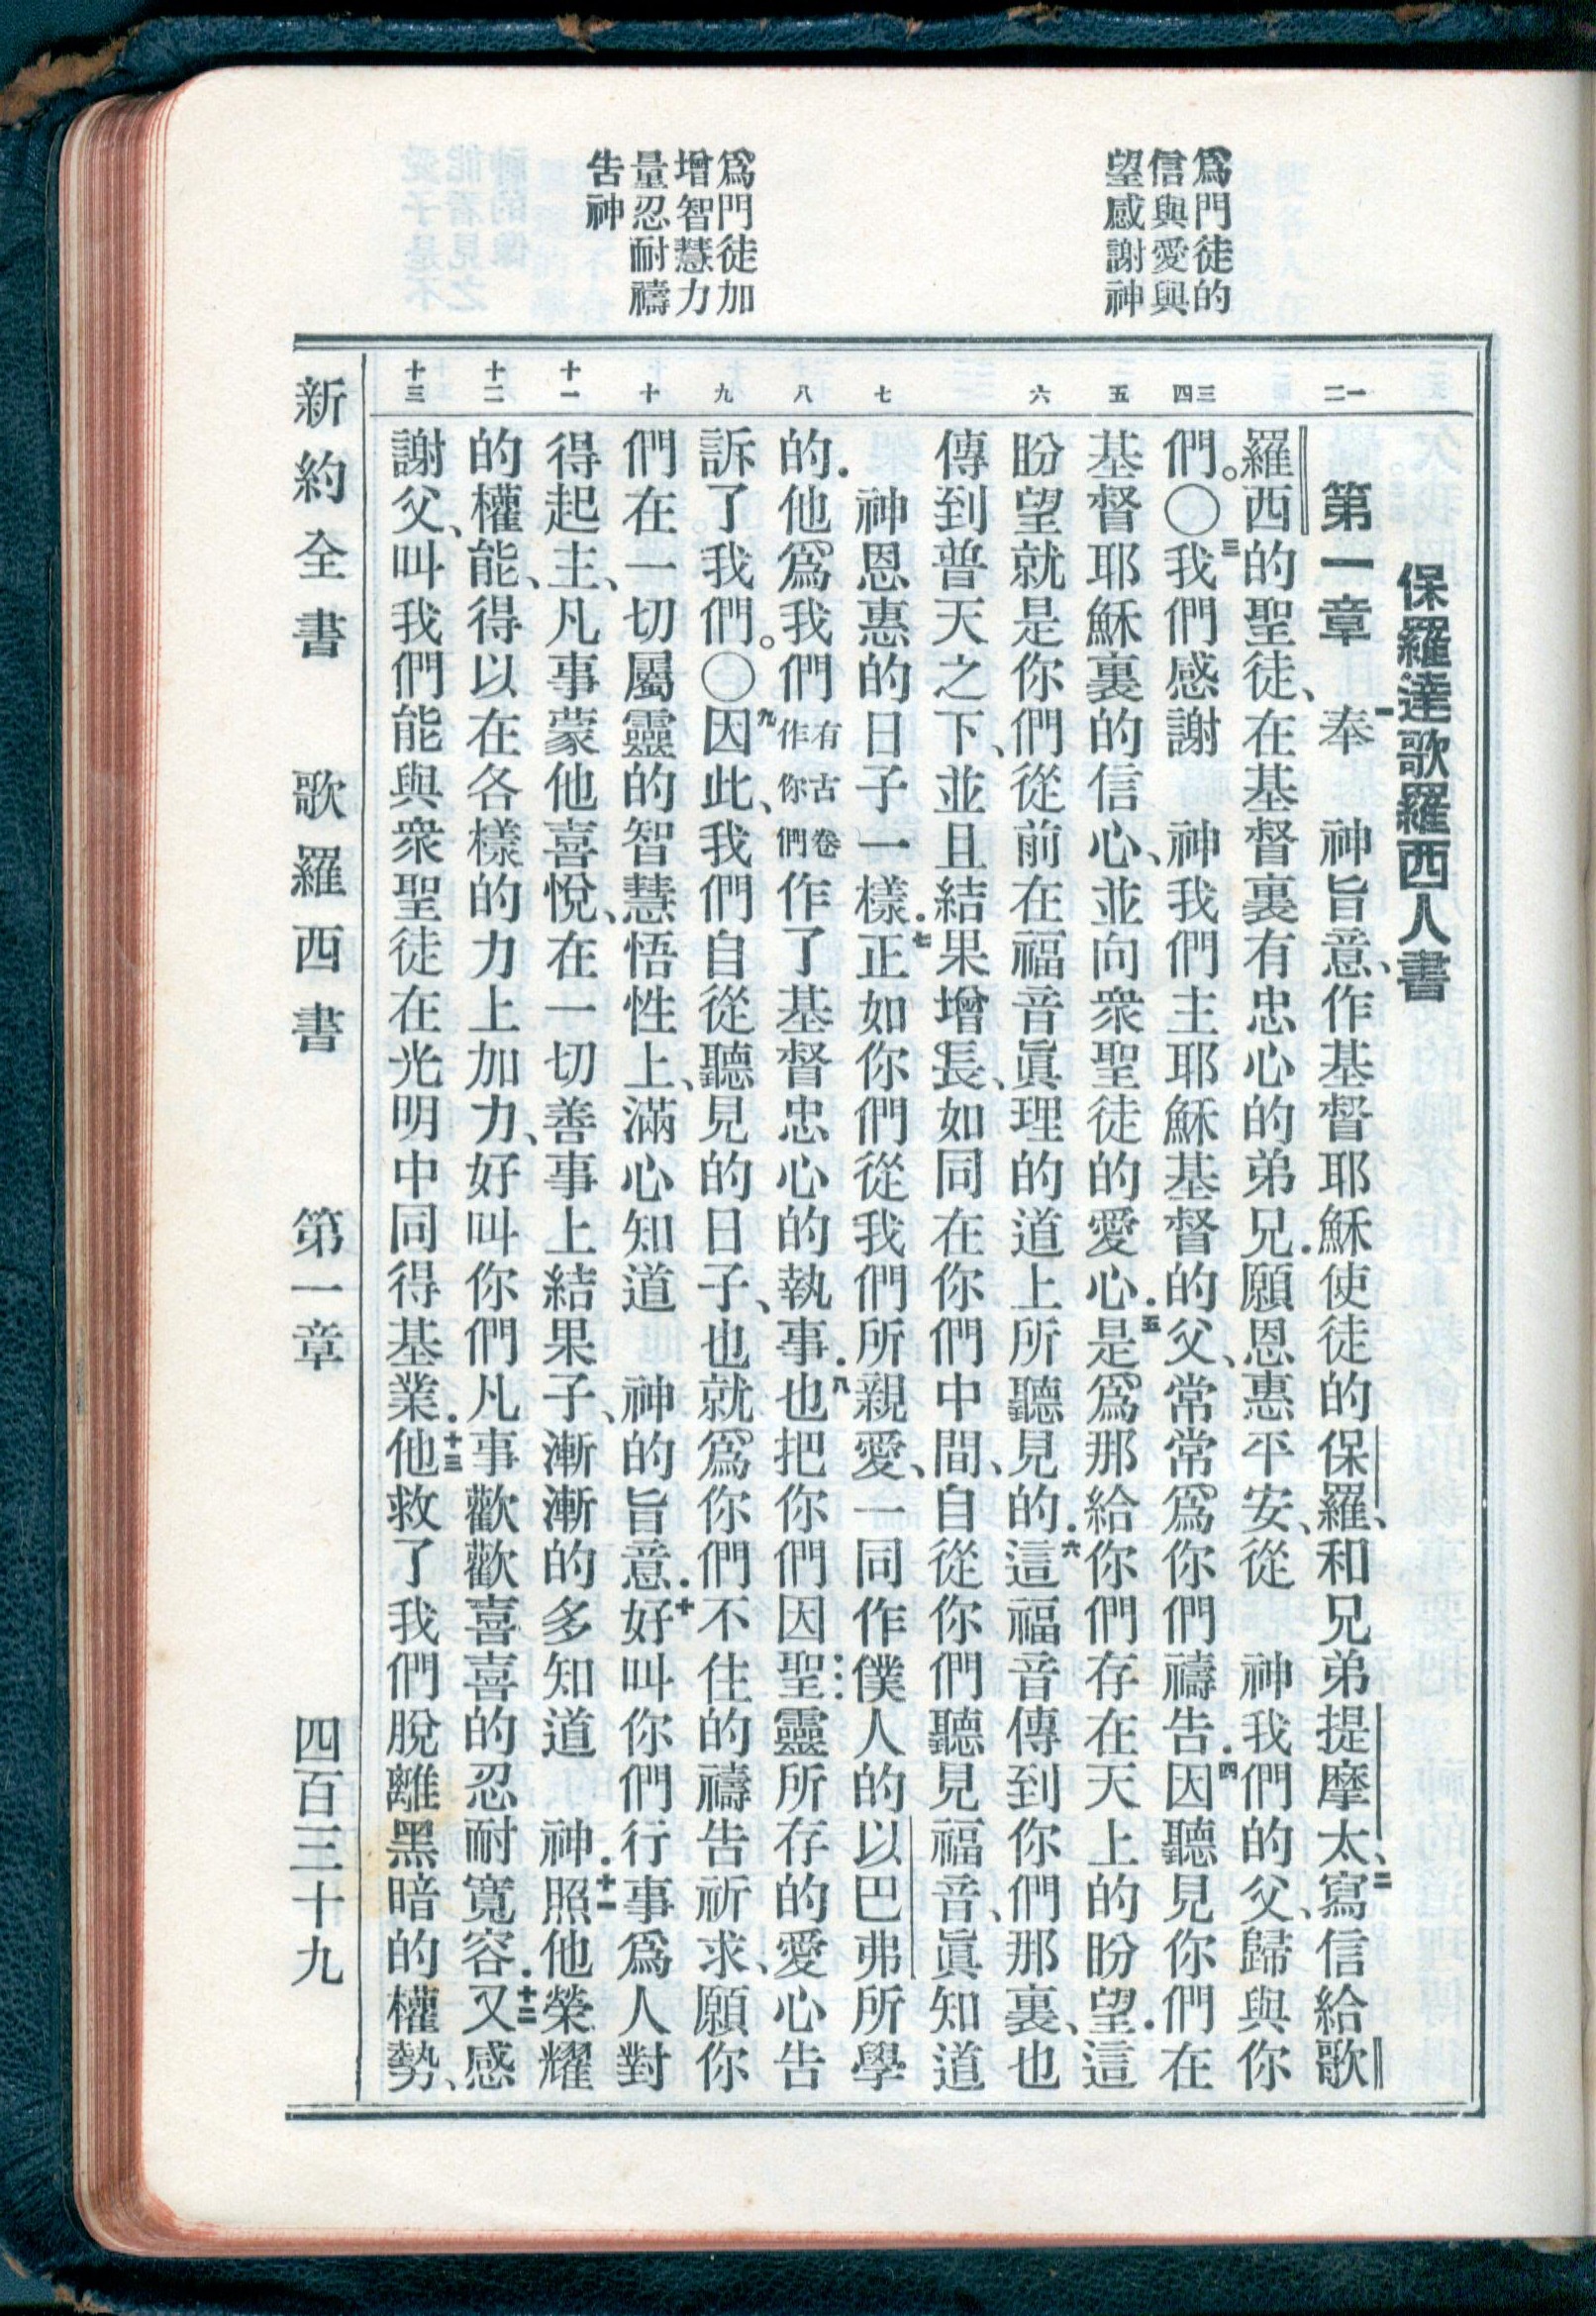 爲門徒的
信與愛與
望感謝神
爲門徒加
增智慧力
量忍耐禱
告神
一二
三四
五
六
七
八
九
十
十一
十二
十三
保羅達歌羅西人書
第一章　一奉　神旨意、作基督耶穌使徒的保羅、和兄弟提摩太、二寫信給歌
羅西的聖徒、在基督裏有忠心的弟兄．願恩惠平安、從　神我們的父、歸與你
們。〇三我們感謝　神我們主耶穌基督的父、常常爲你們禱告．四因聽見你們在
基督耶穌裏的信心、並向衆聖徒的愛心．五是爲那給你們存在天上的盼望．這
盼望就是你們從前在福音眞理的道上所聽見的．六這福音傳到你們那裏、也
傳到普天之下、並且結果增長、如同在你們中間、自從你們聽見福音、眞知道
神恩惠的日子一樣．七正如你們從我們所親愛、一同作僕人的以巴弗所學
的．他爲我們有古卷作你們作了基督忠心的執事．八也把你們因聖靈所存的愛心告
訴了我們。〇九因此、我們自從聽見的日子、也就爲你們不住的禱告祈求、願你
們在一切屬靈的智慧悟性上、滿心知道　神的旨意．十好叫你們行事爲人對
得起主、凡事蒙他喜悅、在一切善事上結果子、漸漸的多知道　神．十一照他榮耀
的權能、得以在各樣的力上加力、好叫你們凡事歡歡喜喜的忍耐寬容．十二又感
謝父、叫我們能與衆聖徒在光明中同得基業．十三他救了我們脫離黑暗的權勢、
新約全書　歌羅西書　第一章　四百三十九